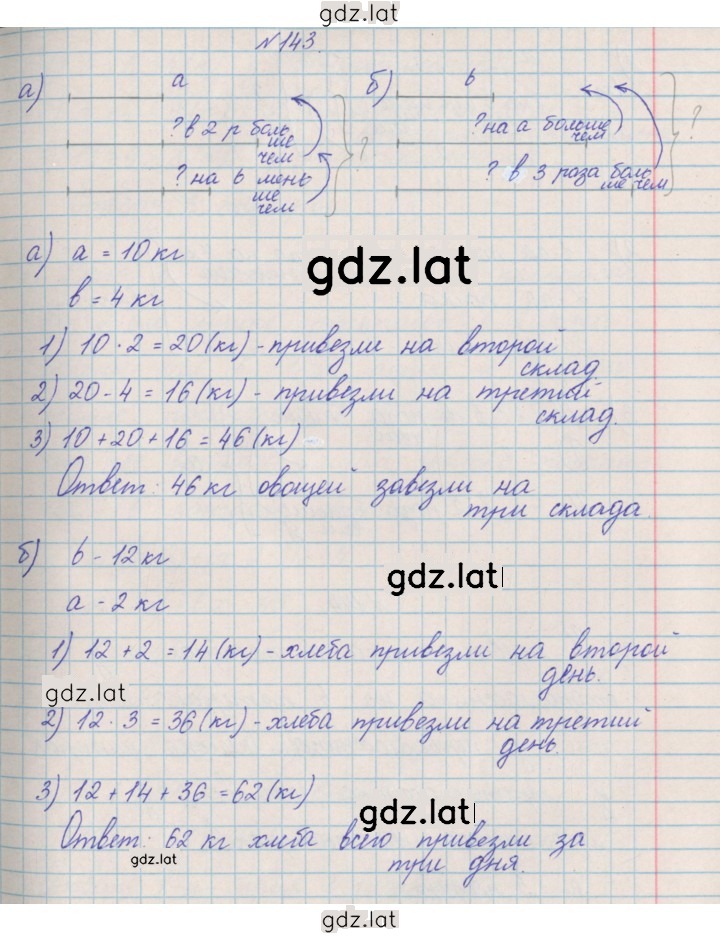 gdz.lat
№143.
а) а б) b
? в 2 р боль ? на а больше
ше чем
чем ? в 3 раза боль
? на b мень ше чем
ше
чем
?
?
а) a = 10 кг
gdz.lat
b = 4 кг
1) 10 · 2 = 20 (кг) - привезли на второй
склад
2) 20 - 4 = 16 (кг) - привезли на третий
склад.
3) 10 + 20 + 16 = 46 (кг)
Ответ: 46 кг овощей завезли на
три склада.
б) b - 12 кг
gdz.lat
a - 2 кг
1) 12 + 2 = 14 (кг) - хлеба привезли на второй
день.
gdz.lat
2) 12 · 3 = 36 (кг) - хлеба привезли на третий
день.
3) 12 + 14 + 36 = 62 (кг)
gdz.lat
Ответ: 62 кг хлеба всего привезли за
gdz.lat
три дня.
gdz.lat